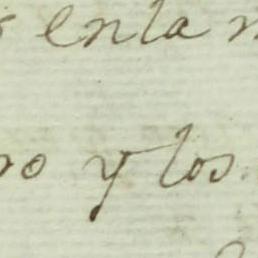 en la
y los